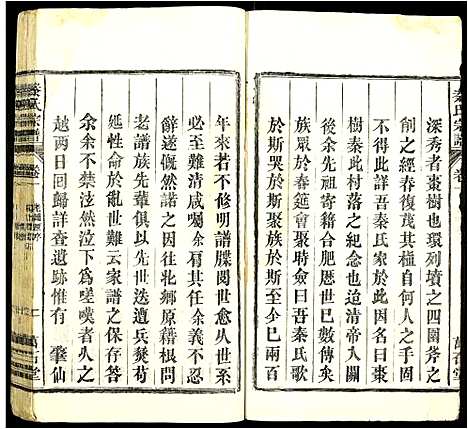 秦氏宗譜
卷
深秀者棗樹也環列墳之四圍斧之
創之經春復茂其種自何人之手何
人之時代不得考吾秦氏家於大棗
樹秦此村落之紀念也清帝入關
後余先祖寄籍合肥歷世已數傳矣
族眾於春筵會歎曰吾秦氏歌
於斯哭於斯聚族於斯至少已兩百
年來若不修明譜牒閱世愈久世系
必至難清咸囑余肩其任余義不可
辭遂慨然諾之因往北鄉原籍根問
老譜族先輩俱曰先世迭遭兵燹苟
延性命於亂世難云家譜之保存答
余余不禁泫然泣下為嗟嘆者久之
越兩日回歸詳查遺跡惟有 肇仙
秦氏宗譜
卷一
萬石堂